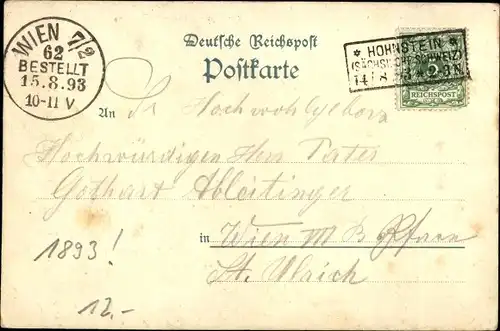 WIEN 7/2
62
BESTELLT
15.8.93
10-11 V
Deutsche Reichspost
Postkarte
* HOHNSTEIN *
(SÄCHSISCHE SCHWEIZ)
14 8 93 * 2-3N
REICHSPOST
An Sr Hochwohlgeborn
Hochwürdigen Herr Pater
Gothart Ableitinger
in Wien III B Pfarre
St. Ulrich
1893!
12.-